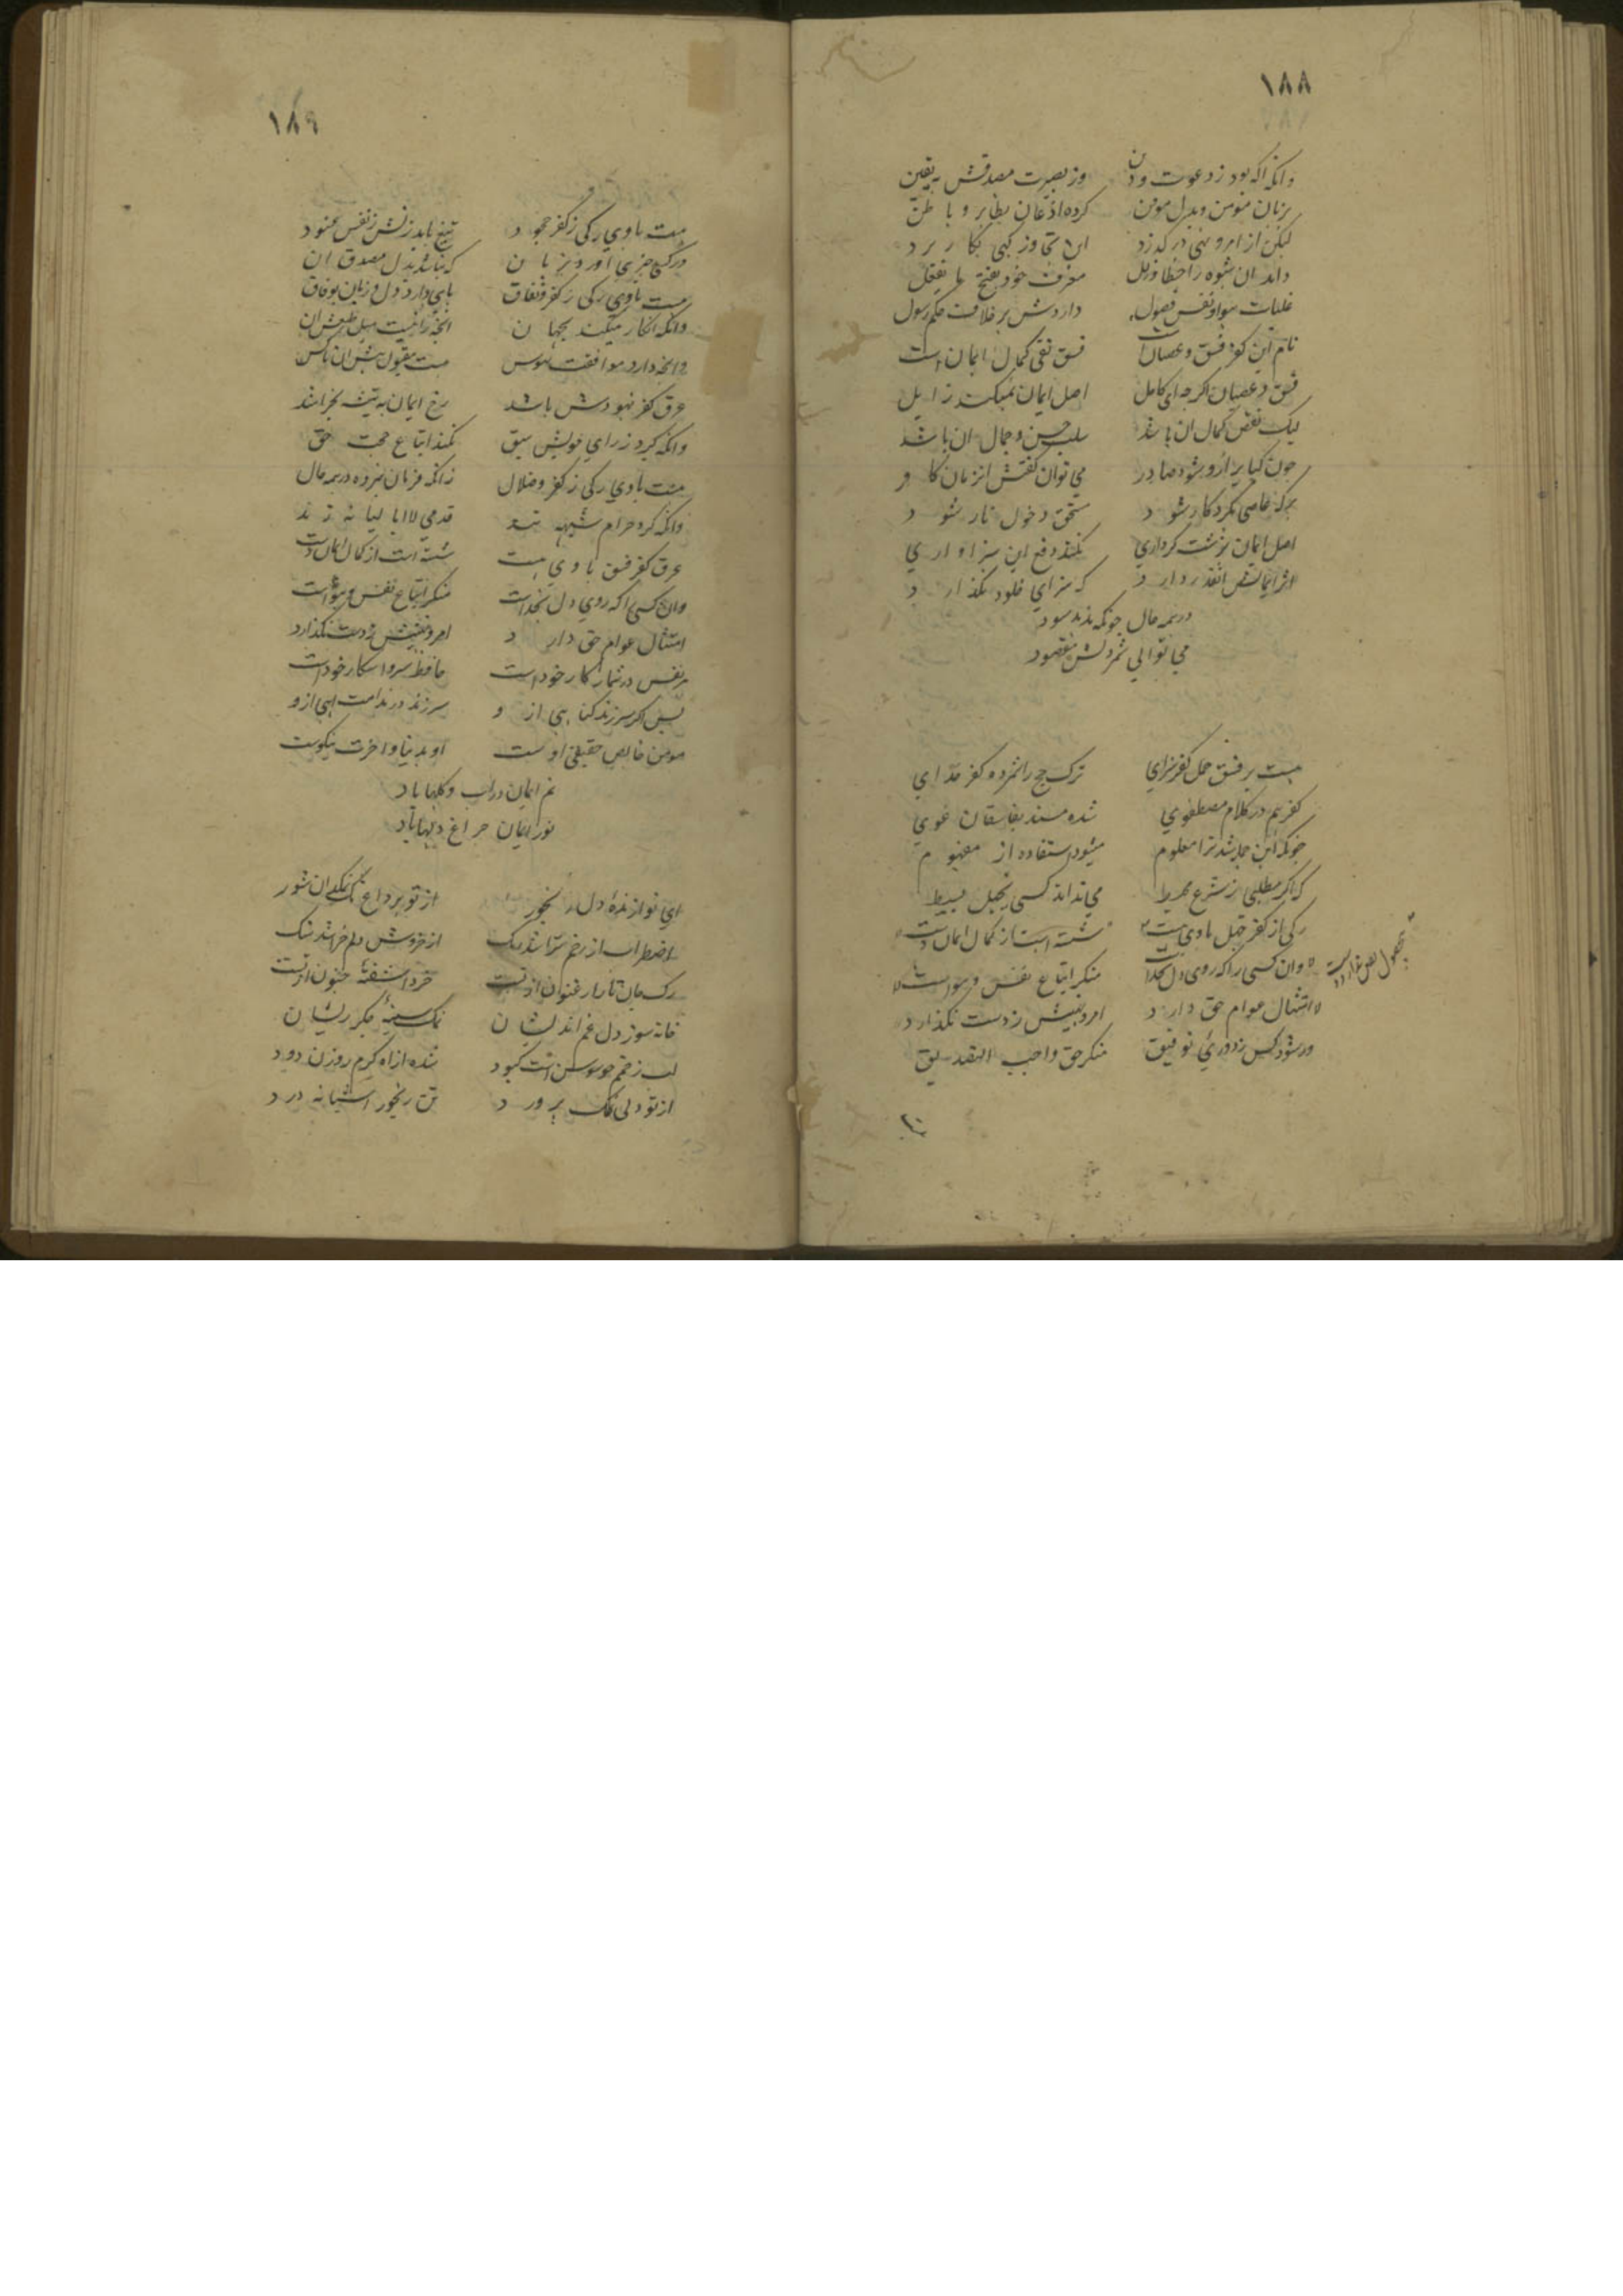 ١٨٨
وانکه بود ز دعوت و دین وز بصیرت مصدقش به یقین
بزبان مؤمن و بدل مومن کرده اذعان بظاهر و باطن
لیکن از امر و نهی در گذرد این تجاوز کهی بکار برد
داند ان شیوه را خطا و زلل معرف خود بقبح با تعقل
غلبات هوا و نفس فضول داردش بر خلاف حکم رسول
نام این کفر فسق و عصیان است فسق نفی کمال ایمان است
فسق و عصیان اگرچه ای کامل اصل ایمان نمیکند زایل
لیک نقص کمال ان باشد سلب حسن و جمال ان باشد
چون کبایر ازو شود صادر می توان گفتش انزمان کافر
هرکه عاصی بکردکار شود مستحق دخول نار شود
اصل ایمان بزشت کرداری نکند دفع این سزاواری
اثر ایمانش انقدر دارد که سزای خلود نگذارد
در همه حال چونکه بد بد سود
می توانی شمردنش مقصود
هست بر فسق حمل کفر سزای ترک حج را شمرده کفر خدای
کفر هم در کلام مصطفوی شده مسند بفاسقان غوی
چونکه این جمله شد ترا معلوم میشود استفاده از مفهوم
که اگر مطلبی ز شرع محیط می نداند کسی بجهل بسیط
رکی از کفر جهل با وی هست شسته است از کمال ایمان دست
وان کسی را که روی دل بخداست منکر اتباع نفس و هواست
امتثال عوام حق دارد امر و نهیش ز دست نگذارد
ور شود کس ز دوری توفیق منکر حق واجب التصدیق
١٨٩
هست با وی رکی ز کفر جحود تیغ باید زدنش ز نفس عنود
ور کسی چیزی آورد بزبان که نباشد بدل مصدق ان
هست با وی رکی ز کفر و نفاق
وانکه انکار میکند بجهان انچه را نیست میل طبعش ان
وانچه دارد موافقت بهوس هست مقبول پیش ان ناکس
عرق کفر تهودش باشد رخ ایمان به تیشه بخراشد
وانکه گیرد ز رای خویش سبق نکند اتباع حجت حق
هست با وی رکی ز کفر و ضلال زانکه فرمان نبرده در همه حال
وانکه کرد حرام شبهه تند قدمی لاابالیانه زند
عرق کفر فسق با وی هست شسته است از کمال ایمان دست
وان کسی را که روی دل بخداست منکر اتباع نفس و هواست
امتثال عوام حق دارد امر و نهیش ز دست نگذارد
هر نفس در شمار کار خود است حافظ سر و اشکار خود است
پس اگر سر زند گناهی ازو سر زند در ندامت اهی ازو
مومن خالص حقیقی اوست او بدنیا و اخرت نیکوست
نم ایمان در اب و گلها باد
نور ایمان چراغ دلها باد
ای نوازنده دل رنجور از تو بر داغ نمکدان شور
اضطراب از رخم تراشد رنک از خروش دلم خراشد سنک
رک جان تار ارغنوان از تست خرد اشفته جنون از تست
خانه سوز دل غم اندیشان نمک سینه جگر ریشان
لب زخم چو سوسن است کبود شده از اه گرم روزن دود
از تو دلی نمک پرورد تن رنجور اشیانه درد